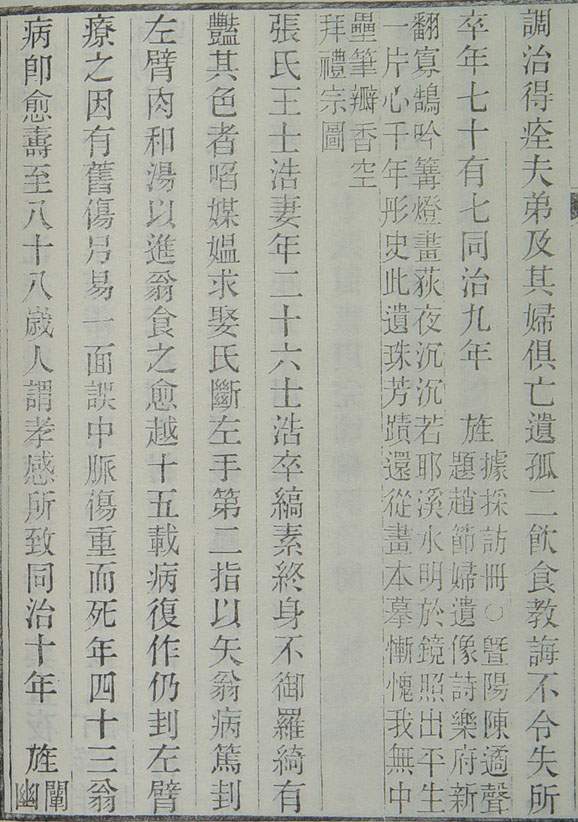 調治得痊夫弟及其婦俱亡遺孤二飲食教誨不令失所
卒年七十有七同治九年 旌
據採訪冊○暨陽陳遹聲
題趙節婦遺像詩樂府新
翻寡鵠吟篝燈畫荻夜沉沉若耶溪水明於鏡照出平生
一片心千年彤史此遺珠芳蹟還從畫本摹慚愧我無中
壘筆瓣香空
拜禮宗圖
張氏王士浩妻年二十六士浩卒縞素終身不御羅綺有
豔其色者啗媒媼求娶氏斷左手第二指以矢翁病篤刲
左臂肉和湯以進翁食之愈越十五載病復作仍刲左臂
療之因有舊傷另易一面誤中脈傷重而死年四十三翁
病卽愈壽至八十八歲人謂孝感所致同治十年 旌
闡
幽